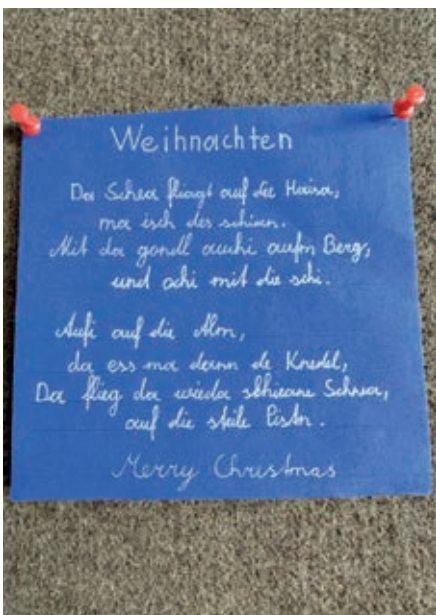 Weihnachten
Da Schea fliagt auf die Haisa,
ma isch des schian.
Mit da gondl auchi aufm Berg,
und achi mit die schi.
Aufi auf die Alm,
da ess ma dann de Knedel,
Da flieg da wieda schiane Schnea,
auf die steile Pistn.
Merry Christmas